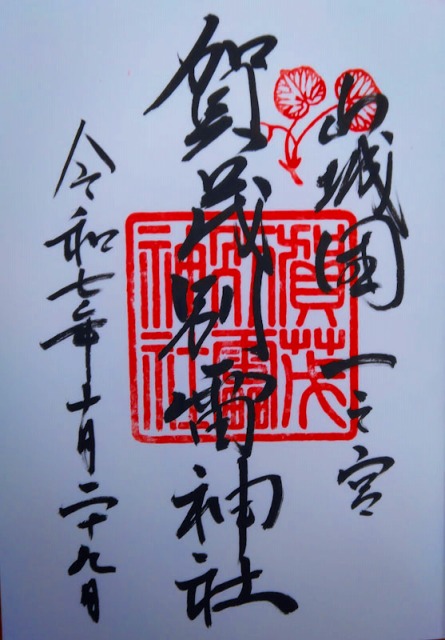 山城国 一之宮
賀茂別雷神社
賀茂
別雷
神社
令和七年十月二十九日